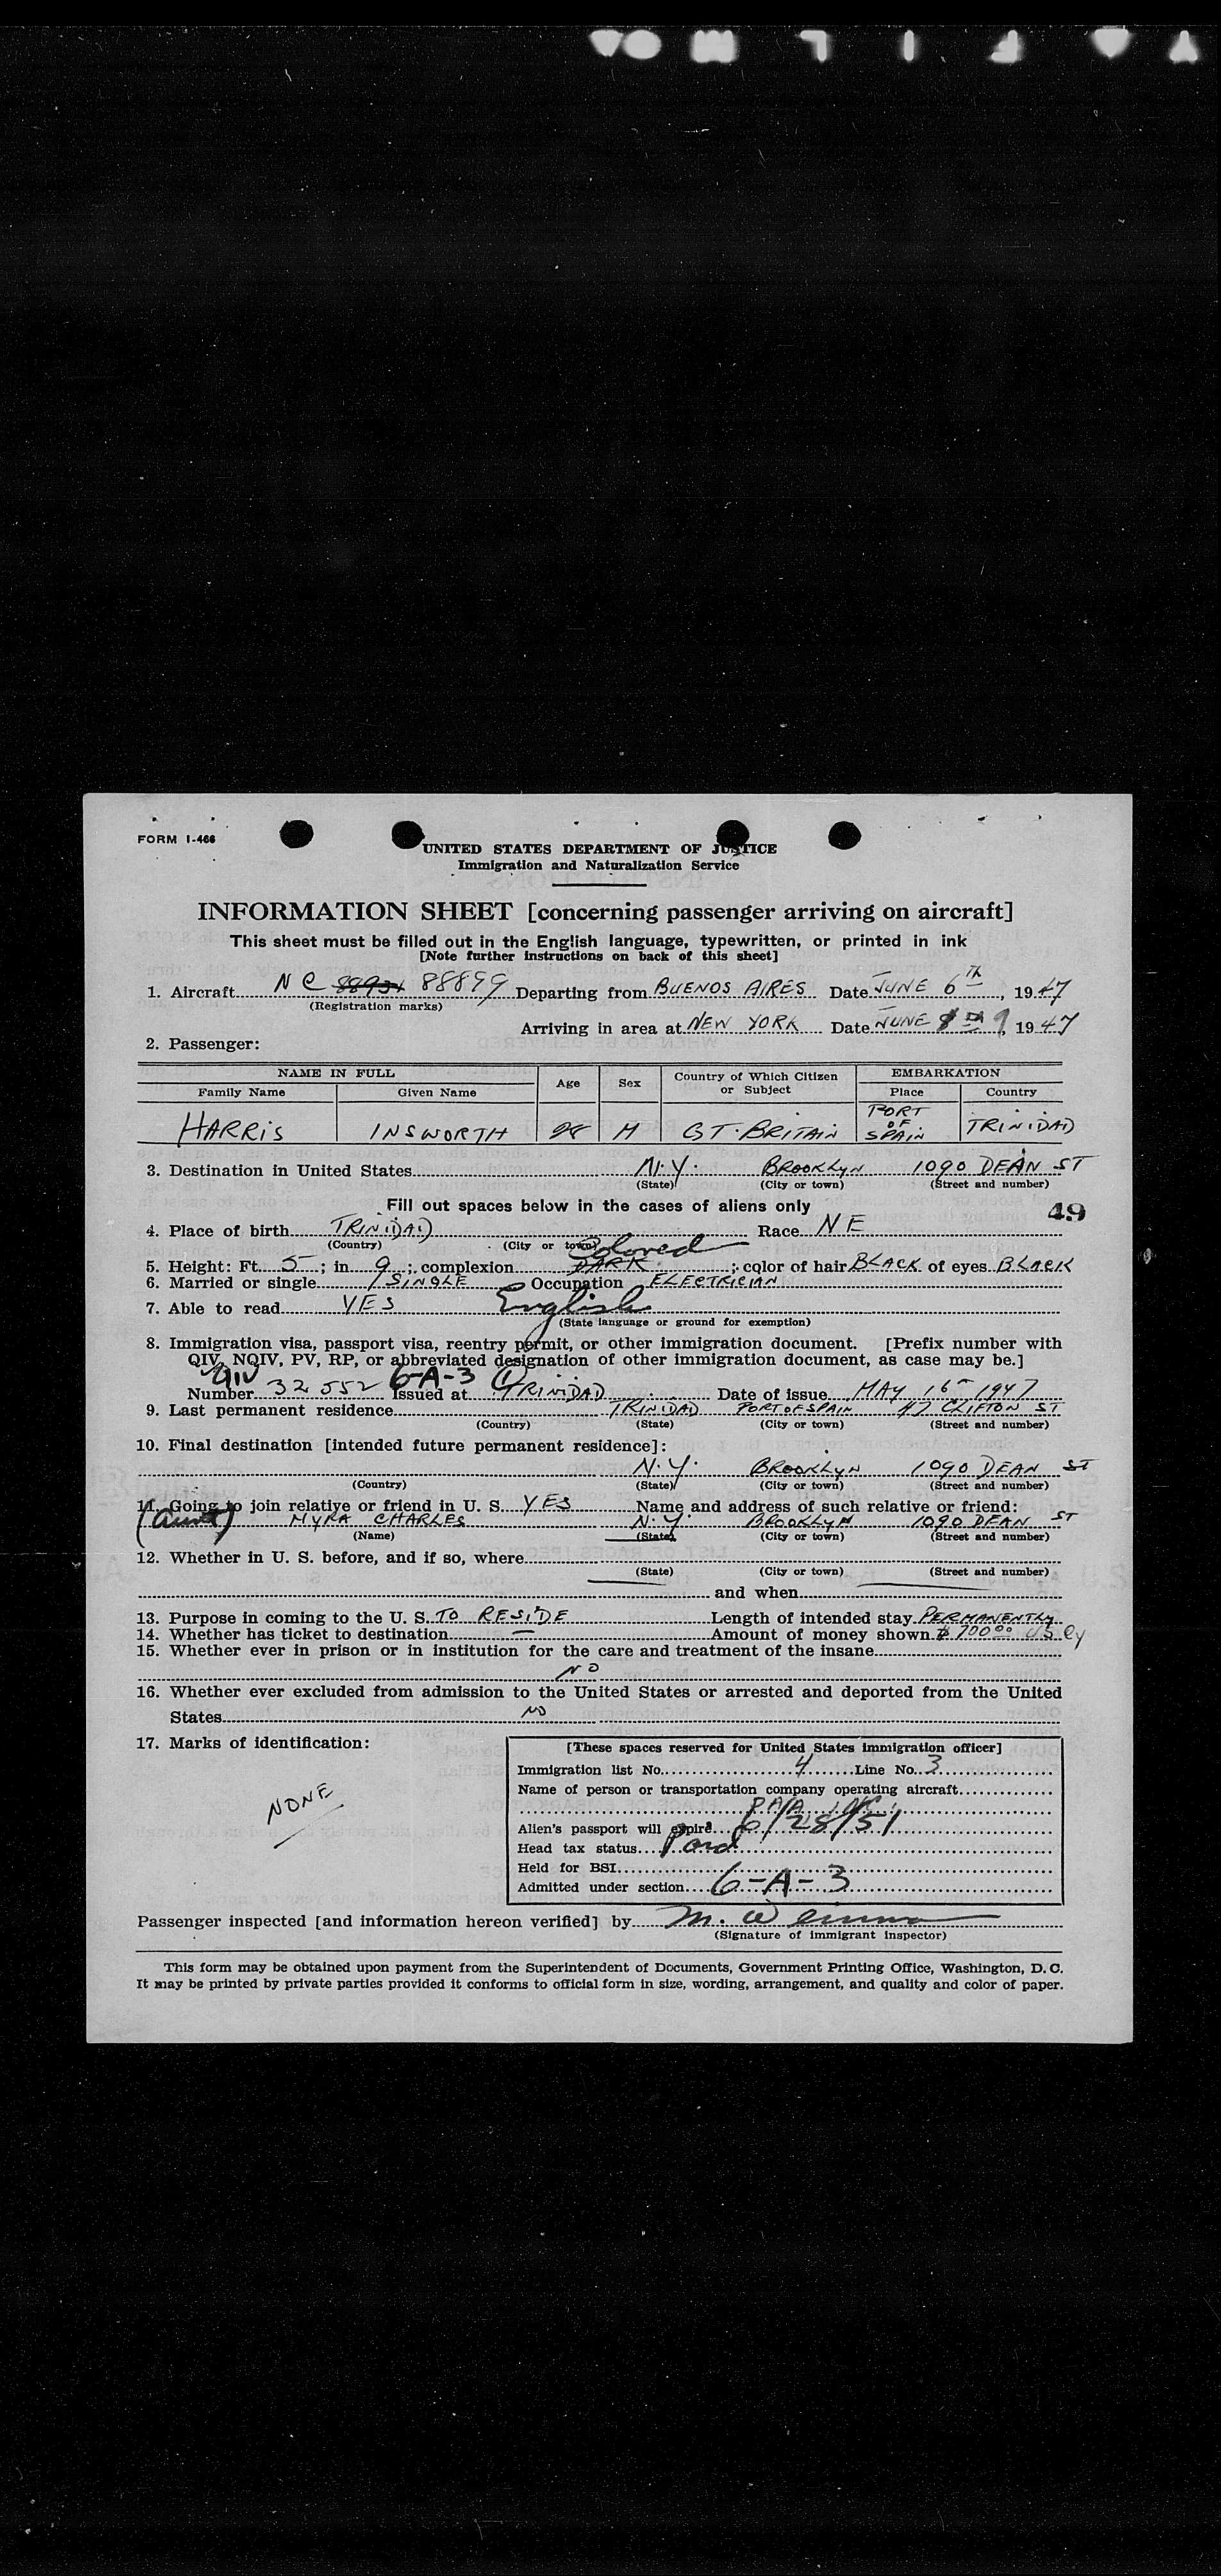 FORM I-466
UNITED STATES DEPARTMENT OF JUSTICE
Immigration and Naturalization Service
INFORMATION SHEET [concerning passenger arriving on aircraft]
This sheet must be filled out in the English language, typewritten, or printed in ink
[Note further instructions on back of this sheet]
1. Aircraft NC 88899 Departing from BUENOS AIRES Date JUNE 6TH, 1947
(Registration marks)
Arriving in area at NEW YORK Date JUNE 9, 1947
2. Passenger:
NAME IN FULL Age Sex Country of Which Citizen or Subject EMBARKATION
Family Name Given Name Place Country
HARRIS INSWORTH 28 M GT. BRITAIN PORT OF SPAIN TRINIDAD
3. Destination in United States N.Y. BROOKLYN 1090 DEAN ST
(State) (City or town) (Street and number)
Fill out spaces below in the cases of aliens only
49
4. Place of birth TRINIDAD Race NE
(Country) (City or town)
Colored
5. Height: Ft. 5; in 9; complexion DARK; color of hair BLACK of eyes BLACK
6. Married or single SINGLE Occupation ELECTRICIAN
7. Able to read YES English
(State language or ground for exemption)
8. Immigration visa, passport visa, reentry permit, or other immigration document. [Prefix number with
QIV, NQIV, PV, RP, or abbreviated designation of other immigration document, as case may be.]
QIV 6-A-3 (1)
Number 32552 Issued at TRINIDAD Date of issue MAY 16 1947
9. Last permanent residence TRINIDAD PORT OF SPAIN 47 CLIFTON ST
(Country) (State) (City or town) (Street and number)
10. Final destination [intended future permanent residence]:
N.Y. BROOKLYN 1090 DEAN ST
(Country) (State) (City or town) (Street and number)
11. Going to join relative or friend in U. S. YES Name and address of such relative or friend:
(aunt) MYRA CHARLES N.Y. BROOKLYN 1090 DEAN ST
(Name) (State) (City or town) (Street and number)
12. Whether in U. S. before, and if so, where
(State) (City or town) (Street and number)
and when
13. Purpose in coming to the U. S. TO RESIDE Length of intended stay PERMANENTLY
14. Whether has ticket to destination — Amount of money shown US Cy
15. Whether ever in prison or in institution for the care and treatment of the insane
NO
16. Whether ever excluded from admission to the United States or arrested and deported from the United
States NO
17. Marks of identification:
NONE
[These spaces reserved for United States immigration officer]
Immigration list No. 4 Line No. 3
Name of person or transportation company operating aircraft
PAA INC.
Alien's passport will expire 6/28/51
Head tax status Paid
Held for BSI
Admitted under section 6-A-3
Passenger inspected [and information hereon verified] by M.
(Signature of immigrant inspector)
This form may be obtained upon payment from the Superintendent of Documents, Government Printing Office, Washington, D. C.
It may be printed by private parties provided it conforms to official form in size, wording, arrangement, and quality and color of paper.